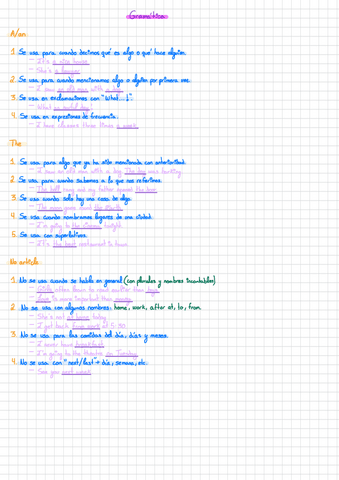 Gramática
A/an
1. Se usa para cuando decimos qué es algo o qué hace alguien.
– It's a nice house.
– She's a lawyer.
2. Se usa para cuando mencionamos algo o alguien por primera vez.
– I saw an old man with a dog.
3. Se usa en exclamaciones con "What...!".
– What an awful day!
4. Se usa en expresiones de frecuencia.
– I have classes three times a week.
The
1. Se usa para algo que ya ha sido mencionado con anterioridad.
– I saw an old man with a dog. The dog was barking.
2. Se usa para cuando sabemos a lo que nos referimos.
– The bell rang and my father opened the door.
3. Se usa cuando solo hay una cosa de algo.
– The moon goes round the Earth.
4. Se usa cuando nombramos lugares de una ciudad.
– I'm going to the cinema tonight.
5. Se usa con superlativos.
– It's the best restaurant in town.
No article
1. No se usa cuando se habla en general (con plurales y nombres incontables)
– often than boys.
– Love is more important than money.
2. No se usa con algunos nombres: home, work, after at, to, from.
– She's not at home today.
– I get back from work at 5:30.
3. No se usa para las comidas del día, días y meses.
– I never have breakfast.
– I'm going to the theatre on Tuesday.
4. No se usa con "next/last" + día, semana, etc.
– See you next week.